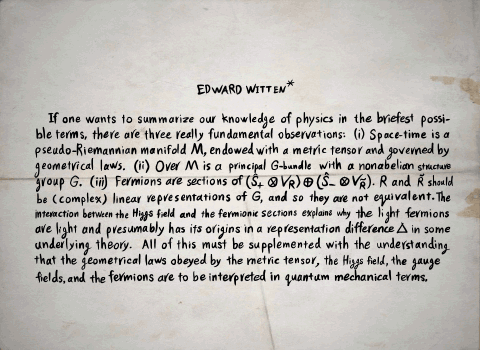 EDWARD WITTEN*
If one wants to summarize our knowledge of physics in the briefest possi-
ble terms, there are three really fundamental observations: (i) Space-time is a
pseudo-Riemannian manifold M, endowed with a metric tensor and governed by
geometrical laws. (ii) Over M is a principal G-bundle with a nonabelian structure
group G. (iii) Fermions are sections of (Ŝ₊ ⊗ V_R) ⊕ (Ŝ₋ ⊗ V_R̃). R and R̃ should
be (complex) linear representations of G, and so they are not equivalent. The
interaction between the Higgs field and the fermionic sections explains why the light fermions
are light and presumably has its origins in a representation difference Δ in some
underlying theory. All of this must be supplemented with the understanding
that the geometrical laws obeyed by the metric tensor, the Higgs field, the gauge
fields, and the fermions are to be interpreted in quantum mechanical terms.